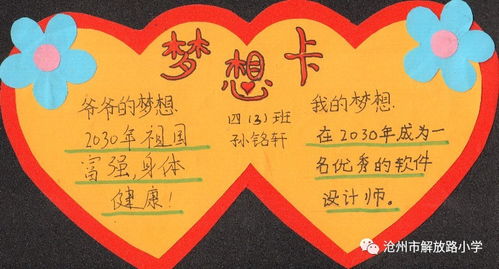 梦想卡
爷爷的梦想
2030年祖国
富强,身体
健康!
四(3)班
孙铭轩
我的梦想
在2030年成为一
名优秀的软件
设计师。
沧州市解放路小学